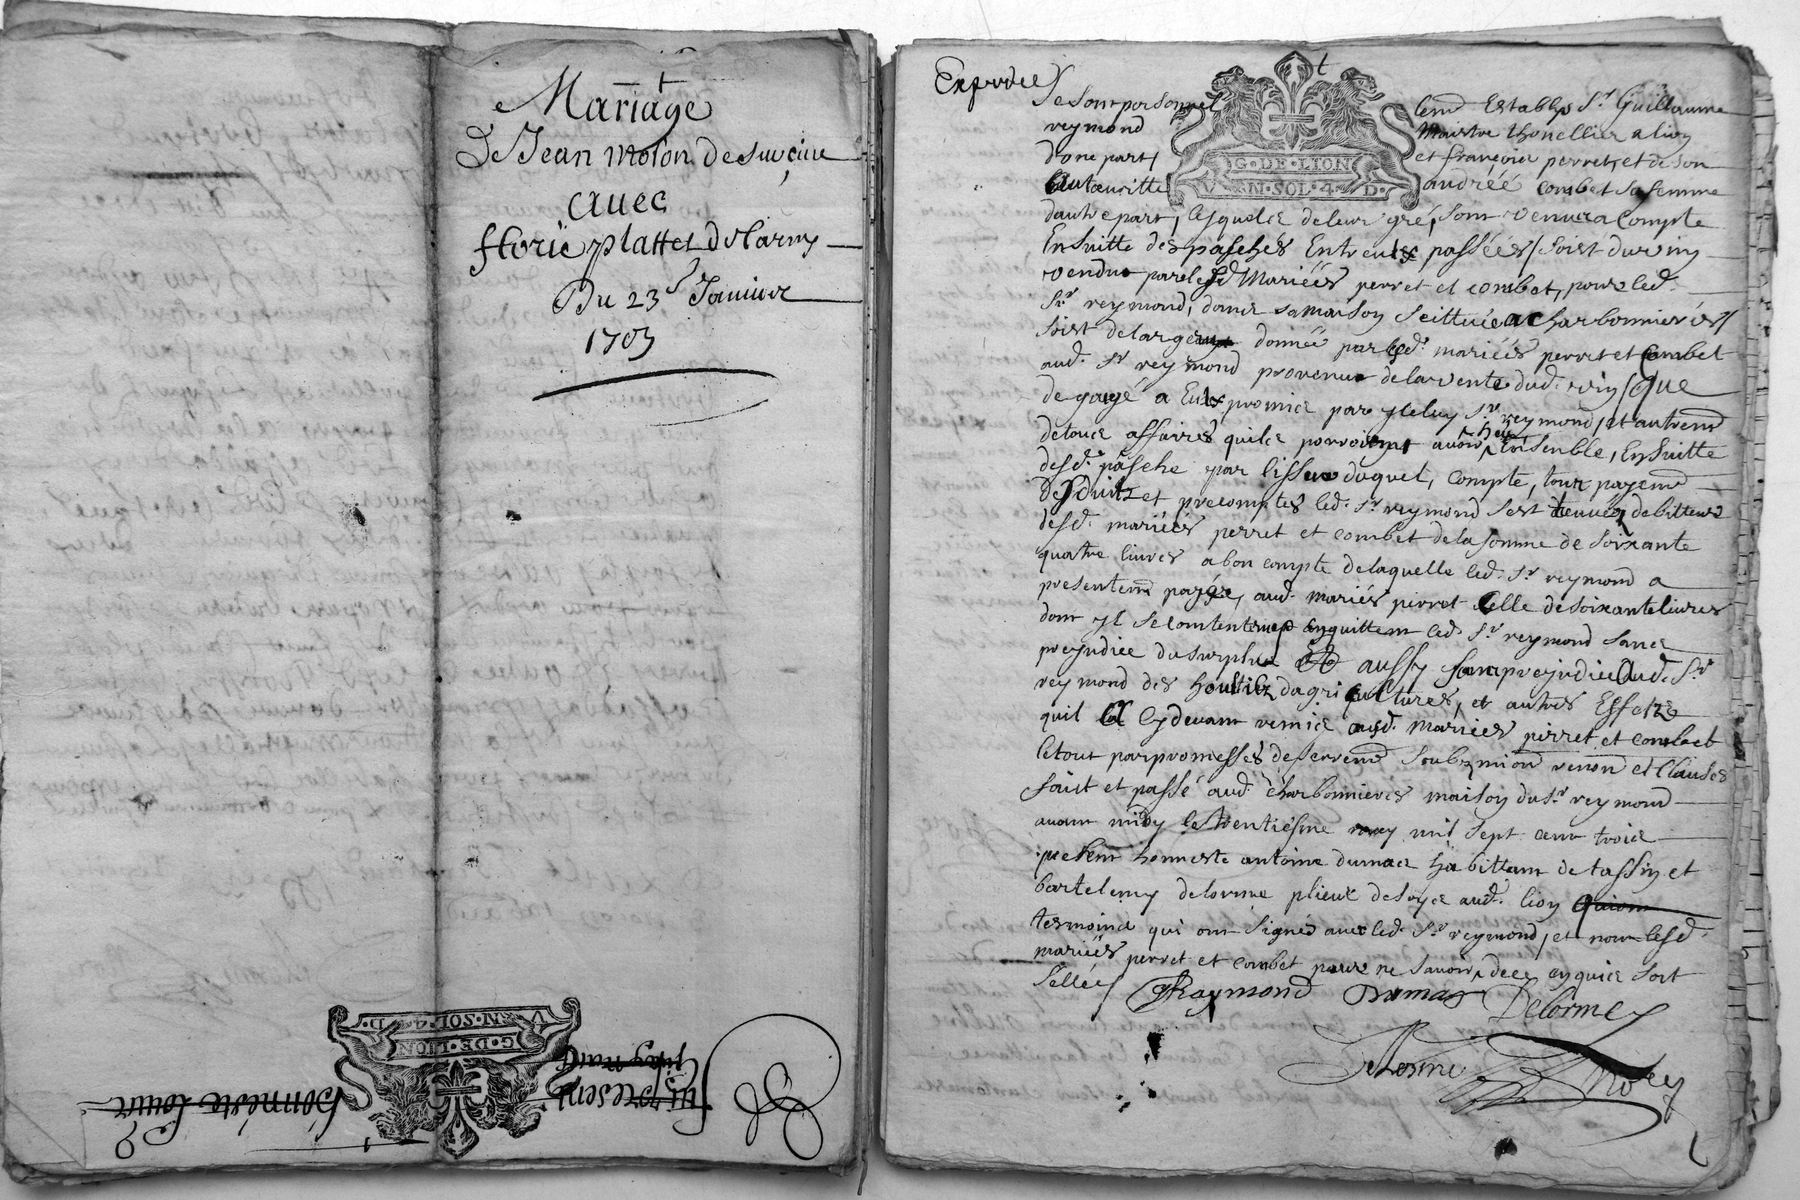 Mariage
De Jean molon de
avec
fforie plattet de larny
Du 23e Janvier
1703
G·DE·LION
V N·SOL·4·D·
fut present
honneste Louis
Expediée
Se sont personnel lemt Establys Sr Guillaume
reymond maistre thonellier a lion
dune part, et françois perret, et de son
autoritte andréé combet sa femme
dautre part, lesquels de leur gré, sont venus a Compte
Ensuitte des paschés Entre eulx passéés / soist du vin
vendu par lesd Mariéés perret et combet, pour led.
Sr reymond, dans sa maison scittuéé a charbonnieres /
soist de largent donnée par lesd. mariéés perret et Combet
aud. Sr reymond provenu de la vente dud. vin / que
de gagé a Eulx promis par yleluy Sr reymond, et autremt
de tous affaires quils pourroient avoir heu Ensenble, Ensuitte
desd. pasche par lissue duquel, compte, tout payemt
desduitz et precomptes led. Sr reymond sest treuvéé debitteur
desd. mariéés perret et combet de la somme de soixante
quatre livres a bon compte de laquelle led. Sr reymond a
presentemt payéé, aud. mariés perret Celle de soixante livres
dont yl se contentent enquittent led. Sr reymond sans
prejudice du surplus Et aussy sans prejudice Aud. Sr
reymond des houstilz dagricultures, et autres Effetz
quil a Cy devant remis ausd. Mariéés perret et combet
le tout par promesses de serremt soubzmion renon et Clauses
faist et passé aud. charbonnieres maison du Sr reymond
avant midy le trentiésme may mil sept cent trois
present honneste antoine dumas habittant de tassin et
bartelemy delorme plieur de soye aud. lion
tesmoins qui ont signés avec led. Sr reymond, et non lesd.
mariéés perret et combet pour ne savoir, de ce enquis soit
sellée /
G·DE·LION
V N·SOL·4·D·
Raymond Dumas Delorme
Delorme